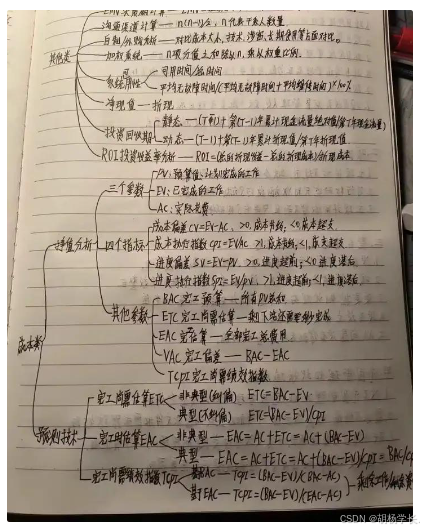 沟通渠道计算 — n(n-1)/2, n代表干系人数量
自制/外购分析 — 对比成本大小, 技术, 涉密, 长期使用等方面对比。
加权系统 — n项分值之和
其他类
系统可用性
可用时间/总时间
平均无故障时间/(平均无故障时间+平均修复时间)×100%
净现值 — 折现
投资回收期
静态 — (T-1)+第(T-1)年累计现金流量绝对值/第T年现金流量)
动态 — (T-1)+第(T-1)年累计折现值/第T年折现值.
ROI投资收益率分析 — ROI=(总的折现收益-总的折现成本)/折现成本
三个参数
PV: 预算值, 计划完成的工作
EV: 已完成的工作
AC: 实际花费
挣值分析
四个指标
成本偏差 CV=EV-AC, >0, 成本节约, <0, 成本超支
成本执行指数 CPI=EV/AC >1, 成本节约, <1, 成本超支
进度偏差 SV=EV-PV, >0, 进度超前, <0 进度滞后
进度执行指数 SPI=EV/PV, >1, 进度超前, <1, 进度滞后
其他参数
BAC 完工预算 — 所有PV总和
ETC 完工尚需估算 — 剩下活还需要多少完成
EAC 完工估算 — 全部完工总费用
VAC 完工偏差 — BAC-EAC
TCPI 完工尚需绩效指数
成本类
预测技术
完工尚需估算ETC
非典型(纠偏) ETC=BAC-EV
典型(不纠偏) ETC=(BAC-EV)/CPI
完工时估算EAC
非典型 — EAC=AC+ETC=AC+(BAC-EV)
典型 — EAC=AC+ETC=AC+(BAC-EV)/CPI=BAC/CPI
完工尚需绩效指数TCPI
基于BAC — TCPI=(BAC-EV)/(BAC-AC)
基于EAC — TCPI=(BAC-EV)/(EAC-AC)
CSDN @胡杨学长